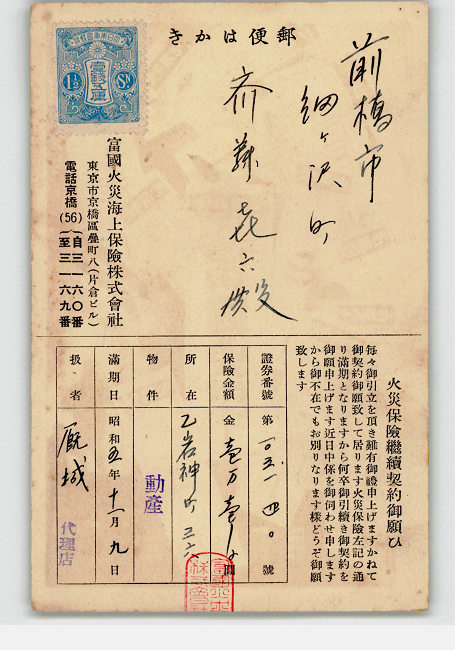 郵便はかき
1½ Sn
前橋市
細ヶ沢町
斎藤㐂六殿
富國火災海上保險株式會社
東京市京橋區疊町八(片倉ビル)
電話京橋(56)(自三一六〇番
至三一六九番
火災保險繼續契約御願ひ
每々御引立を頂き難有御禮申上げますかねて
御契約御願致して居ります火災保險左記の通
り滿期となりますから何卒御引續き御契約を
御願申上げます近日中係を御伺わせ申します
から御不在でもお別りなります樣どうぞ御願
致します
證券番號 第 號
保險金額 金壹万壹 圓
所在 乙岩神町
物件 動產
滿期日 昭和五年十一月九日
扱者 厩城 代理店